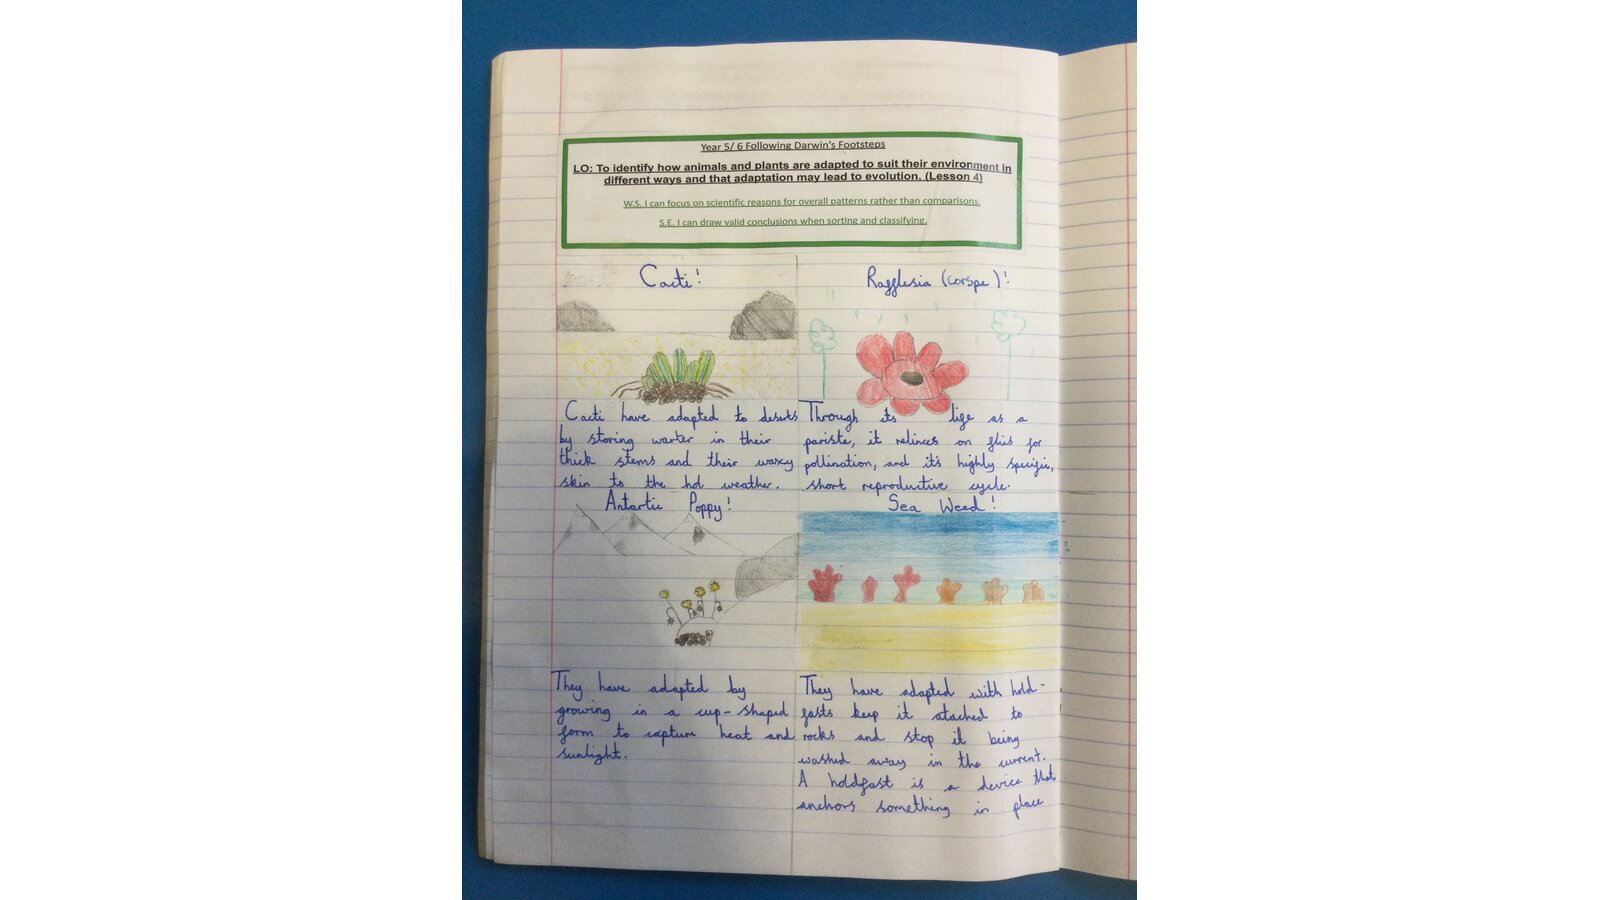 Year 5/ 6 Following Darwin's Footsteps
LO: To identify how animals and plants are adapted to suit their environment in
different ways and that adaptation may lead to evolution. (Lesson 4)
W.S. I can focus on scientific reasons for overall patterns rather than comparisons.
S.E. I can draw valid conclusions when sorting and classifying.
Cacti!
Cacti have adapted to deserts
by storing warter in their
thick stems and their waxy
skin to the hot weather.
Rafflesia (corspe)!
Through its life as a
pariste, it relinces on flies for
pollination, and it's highly specific,
short reproductive cycle.
Antartic Poppy!
They have adapted by
growing in a cup-shaped
form to capture heat and
sunlight.
Sea Weed!
They have adapted with hold-
fasts keep it atached to
rocks and stop it being
washed away in the current.
A holdfast is a device that
anchors something in place